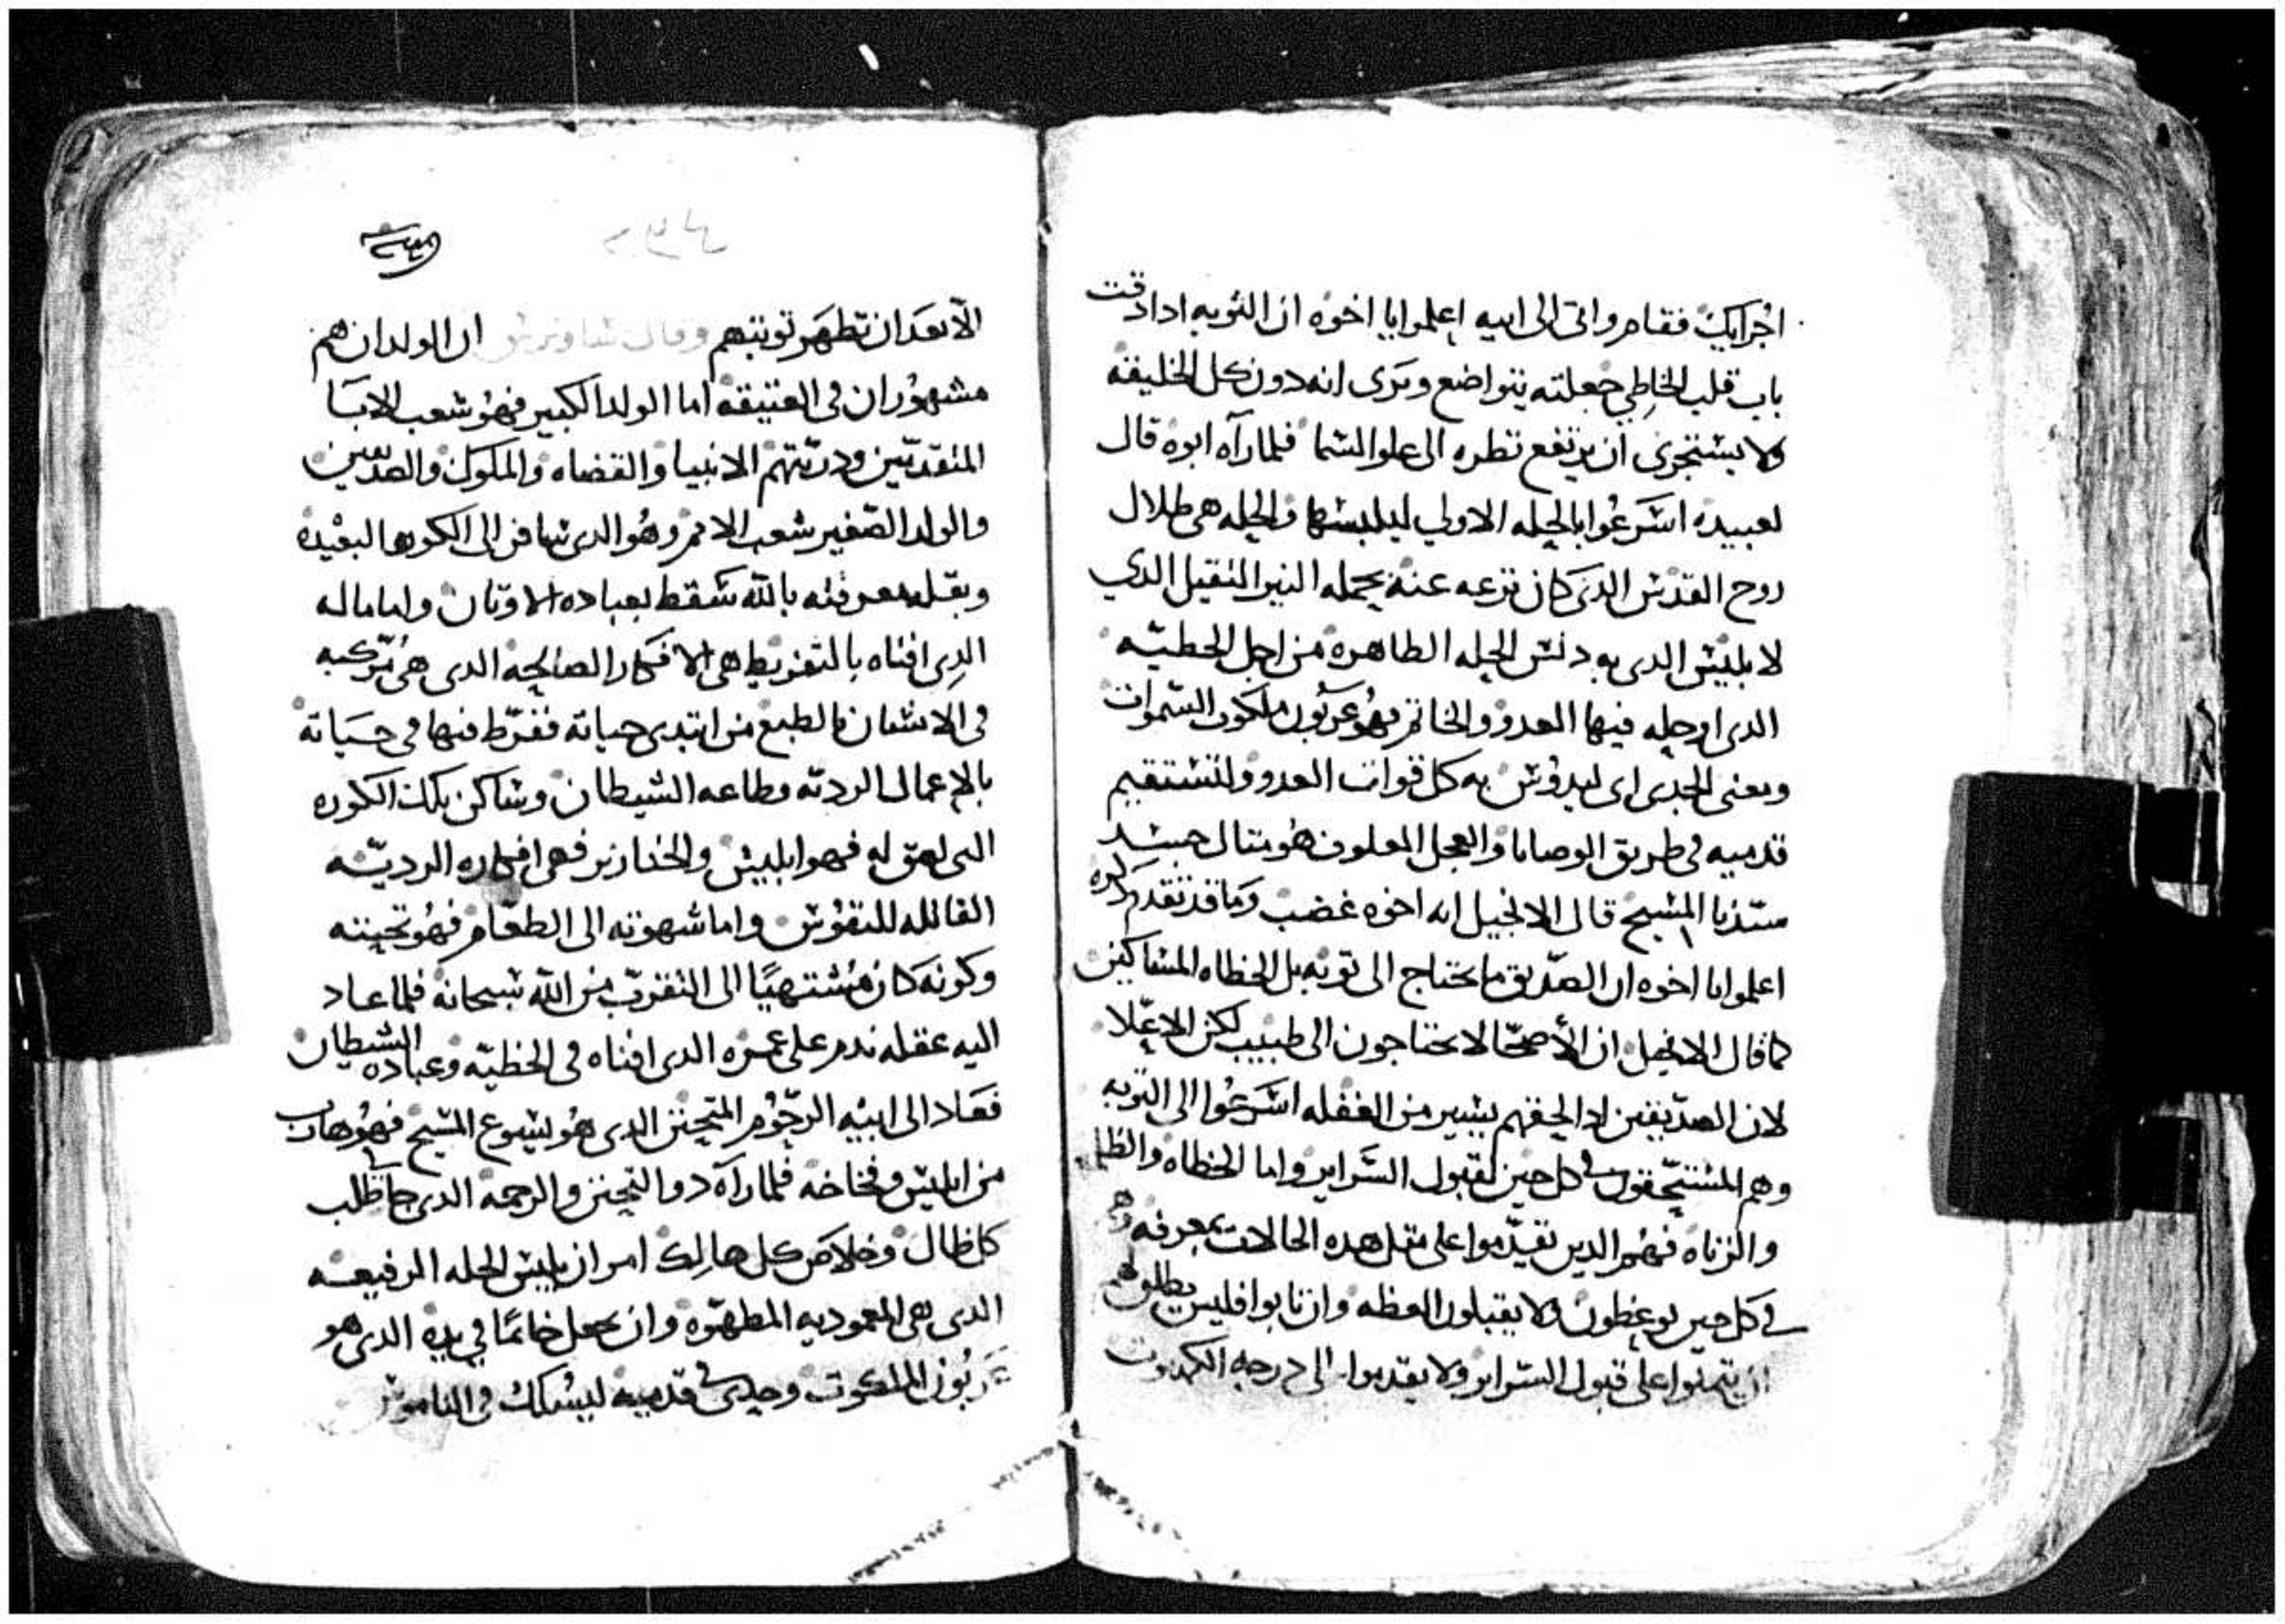 اجرايك فقام واتى الى ابيه اعلموا يا اخوه ان التوبه ادا دقت
باب قلب الخاطي جعلته يتواضع ويرى انه دون كل الخليقه
ولا يستجرى ان يرتفع نظره الى علو السما فلما رآه ابوه قال
لعبيده اسرعوا بالحله الاولي ليلبسها والحله هى طلال
روح القدس الدى كان نزعه عنه بحمله النير الثقيل الدي
لابليس الدى به دنس الحله الطاهره من اجل الخطيه
الدى اوحله فيها العدو والخاتم فهو عربون ملكوت السموات
ومعنى الحدى اى ليدوس به كل قوات العدو ولتستقيم
قدميه في طريق الوصايا والعجل المعلوف هو متال جسد
سيدنا المسيح قال الانجيل انه اخوه غضب وما قد تقدم دكره
اعلموا يا اخوه ان الصديق ما يحتاج الى توبه بل الخطاه المساكين
كما قال الانجيل ان الأصحا لا يحتاجون الى طبيب لكن الاعلا
لان الصديقين ادا لحقهم يسير من الغفله اسرعوا الى التوبه
وهم المستحقون في كل حين لقبول السراير واما الخطاه والظلمه
والزناه فهم الدين تقدموا على متل هده الحالات بمعرفه وهم
في كل حين يوعظون ولا يقبلون العظه وان تابوا فليس يطلق لهم
ان يتمنوا على قبول السراير ولا يقدموا الى درجه الكهنوت
الا بعد ان تظهر توبتهم وقال ساويرس ان الولدان هم
مشهوران فى العتيقه اما الولد الكبير فهو شعب الابا
المتقدمين ودريتهم الانبيا والقضاه والملوك والصديقين
والولد الصغير شعب الامم وهو الدى سافر الى الكوره البعيده
وبقله معرفته بالله سقط بعباده الاوتان واما ماله
الدى افناه بالتفريط هى الافكار الصالحه الدى هى مركبه
فى الانسان بالطبع من ابتدى حياته ففرط فيها فى حياته
بالاعمال الرديه وطاعه الشيطان وساكن تلك الكوره
التى لصق له فهو ابليس والخنازير فهى افكاره الرديه
القاتله للنفوس واما شهوته الى الطعام فهو تحننه
وكونه كان مشتهيًا الى التقرب من الله سبحانه فلما عاد
اليه عقله ندم على عمره الدى افناه فى الخطيه وعباده الشيطان
فعاد الى ابيه الرحوم المتحنن الدى هو يسوع المسيح فهو هارب
من ابليس وفخاخه فلما رآه دو التحنن والرحمه الدى جا طالب
كل ظال وخلاص كل هالك امر ان يلبس الحله الرفيعه
الدى هى المعموديه المطهره وان يجعل خاتمًا في يده الدى هو
عربون الملكوت وحدى في قدميه ليسلك فى الناموس